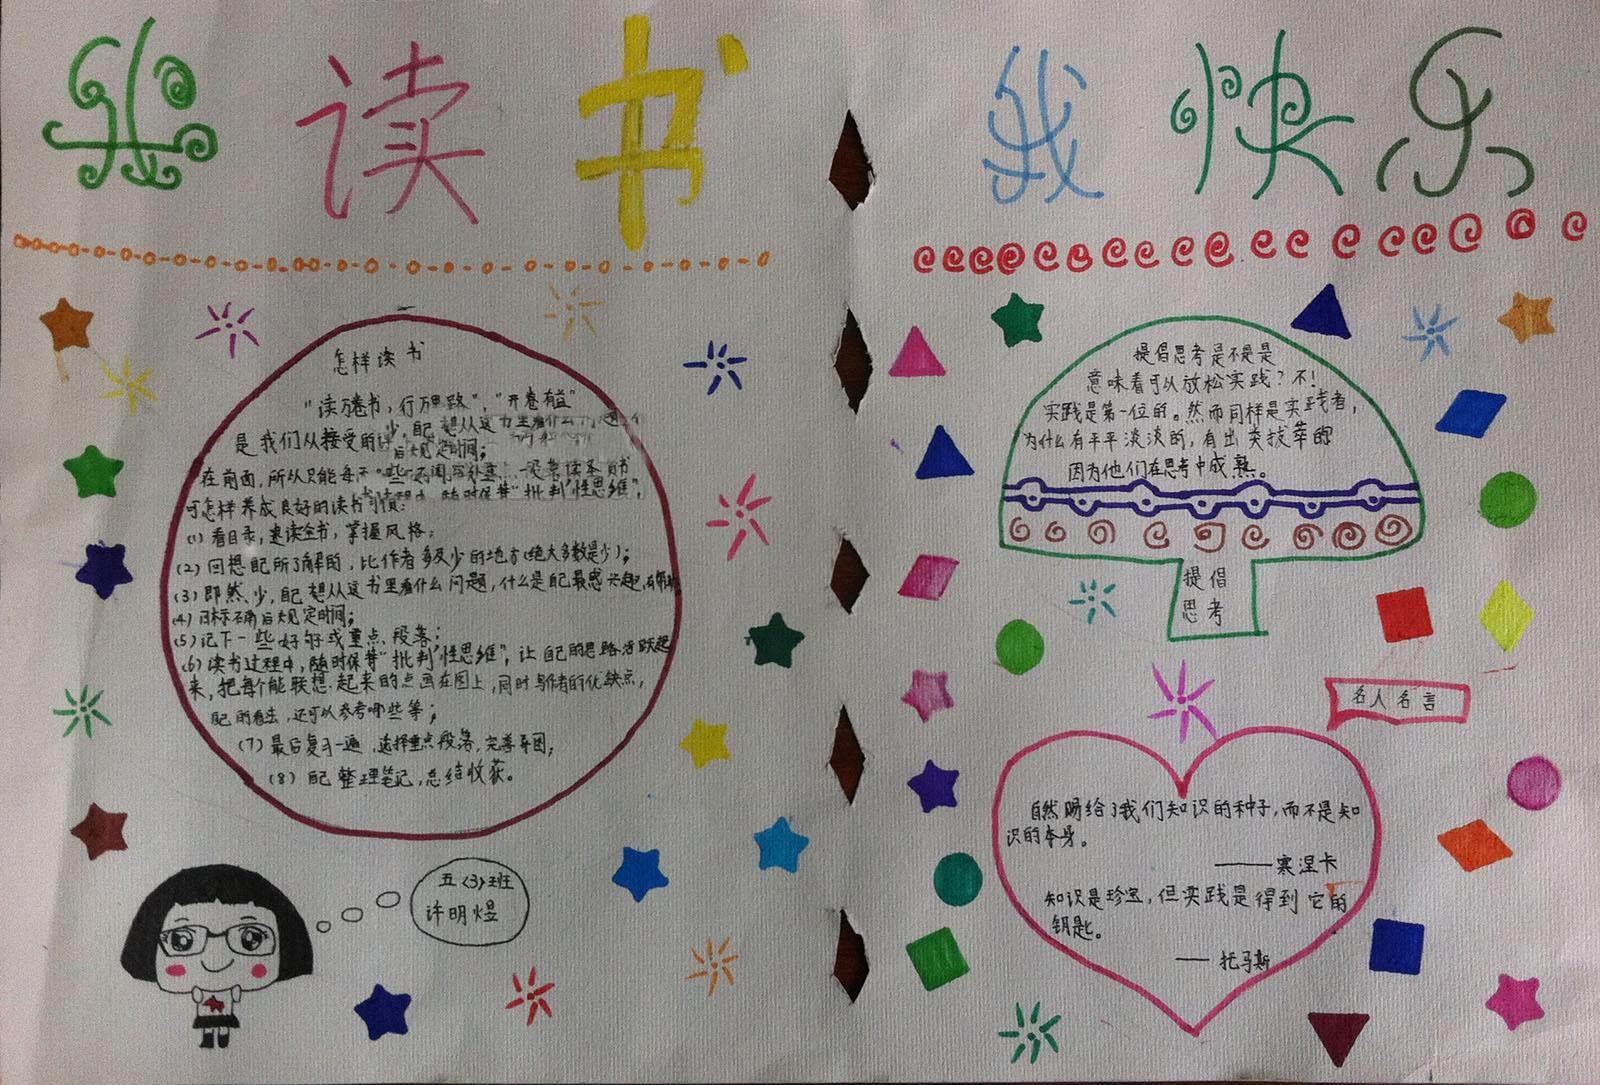 我读书
我快乐
怎样读书
"读万卷书，行万里路"，"开卷有益"
是我们从接受的
在前面，所以只能每天
可怎样养成良好的读书习惯：
(1)看目录，速读全书，掌握风格；
(2)回想自己所了解的，比作者多及少的地方(绝大多数是少)；
(3)即然、少，自己想从这书里看什么问题，什么是自己最感兴趣,有帮助
(4)目标不确后大规定时间；
(5)记下一些好句或重点、段落；
(6)读书过程中，随时保持"批判"性思维"，让自己的思路活跃起
来，把每个能联想起来的点画在图上，同时写作者的优缺点，
自己的看法，还可以参考哪些等；
(7)最后复习一遍，选择重点段落，完善导图；
(8)自己整理笔记，总结收获。
五(3)班
许明煜
提倡思考是不是是
意味着可以放松实践？不！
实践是第一位的。然而同样是实践者，
为什么有平平淡淡的，有出类拔萃的
因为他们在思考中成熟。
提倡
思考
名人名言
自然赐给了我们知识的种子，而不是知
识的本身。
——寒涅卡
知识是珍宝，但实践是得到它的
钥匙。
——托马斯